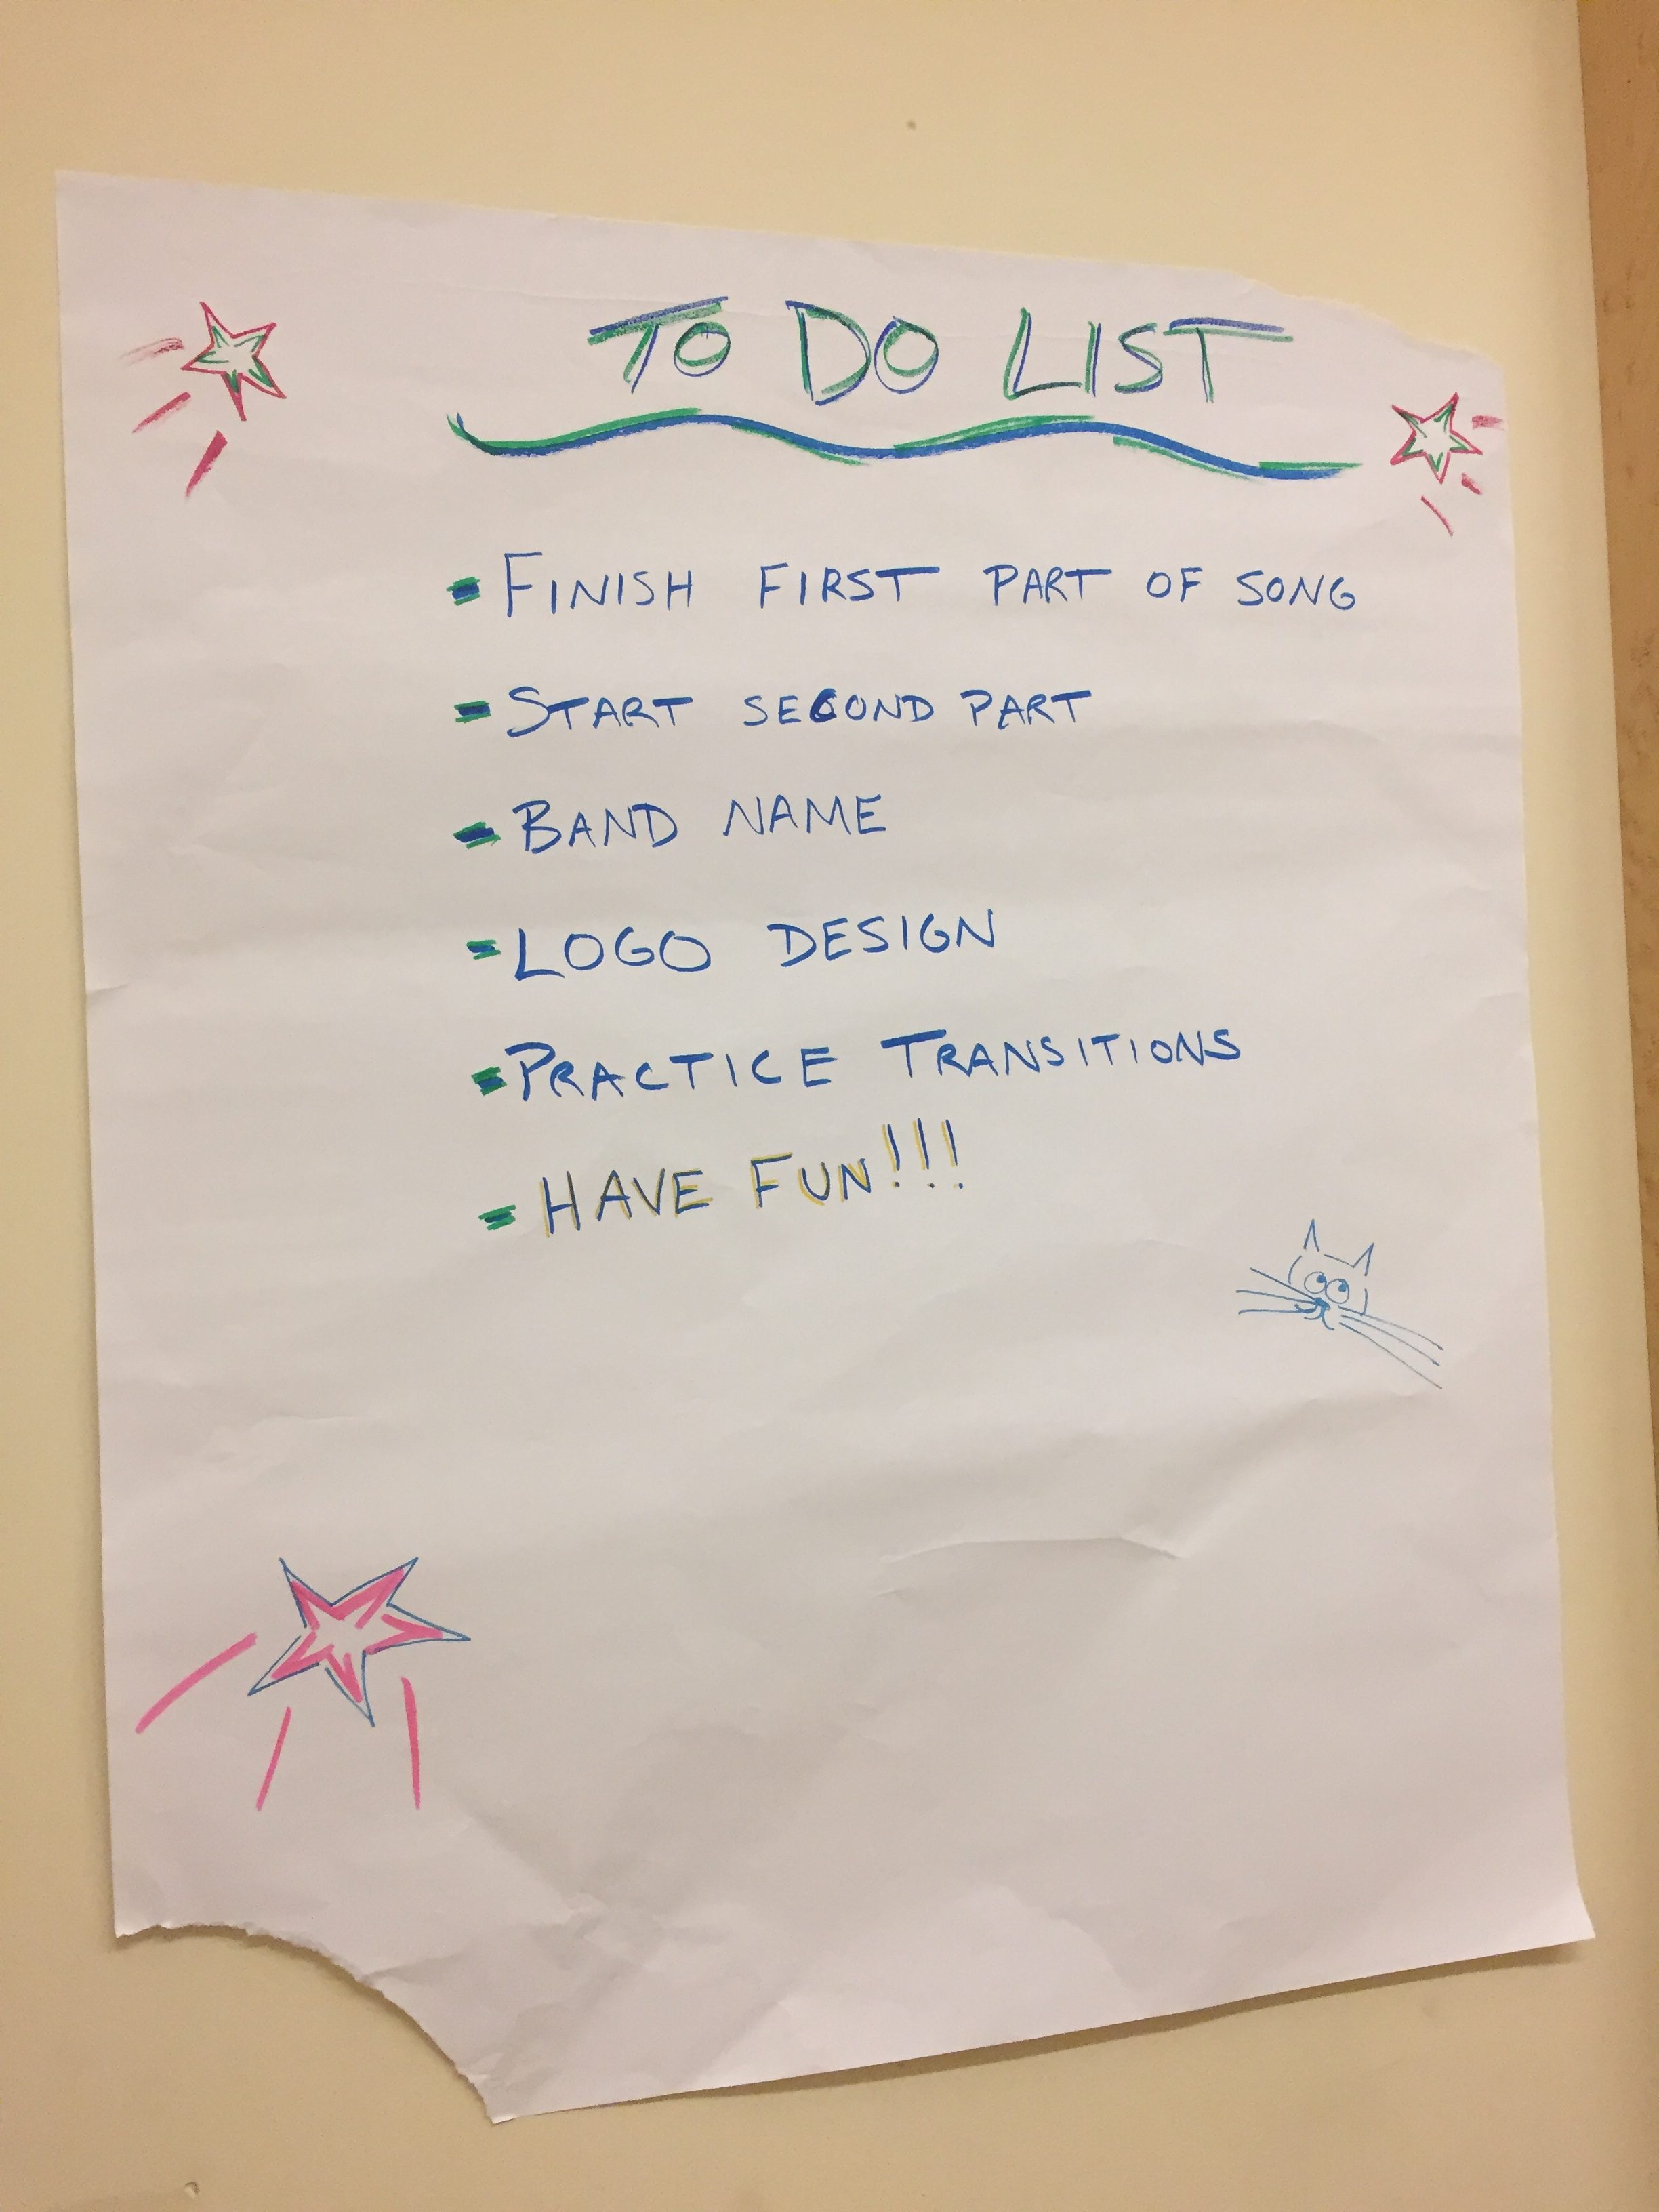 TO DO LIST
- FINISH FIRST PART OF SONG
- START SECOND PART
- BAND NAME
- LOGO DESIGN
- PRACTICE TRANSITIONS
- HAVE FUN!!!